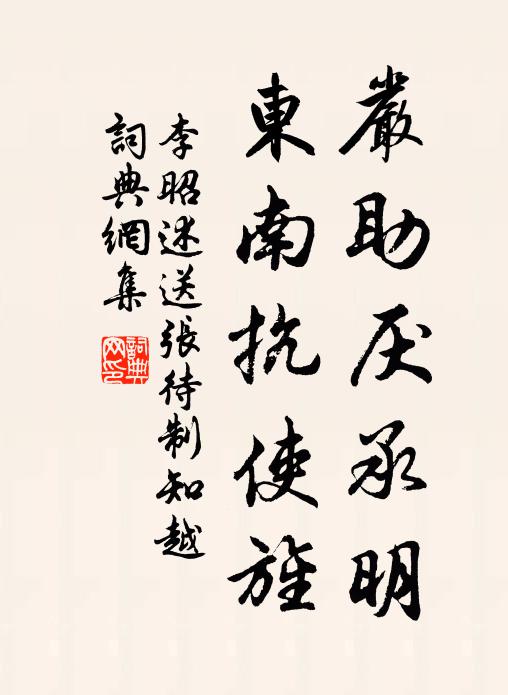 嚴助厌承明
東南抗使旌
李昭述送張待制知越
詞典網集
詞典网印